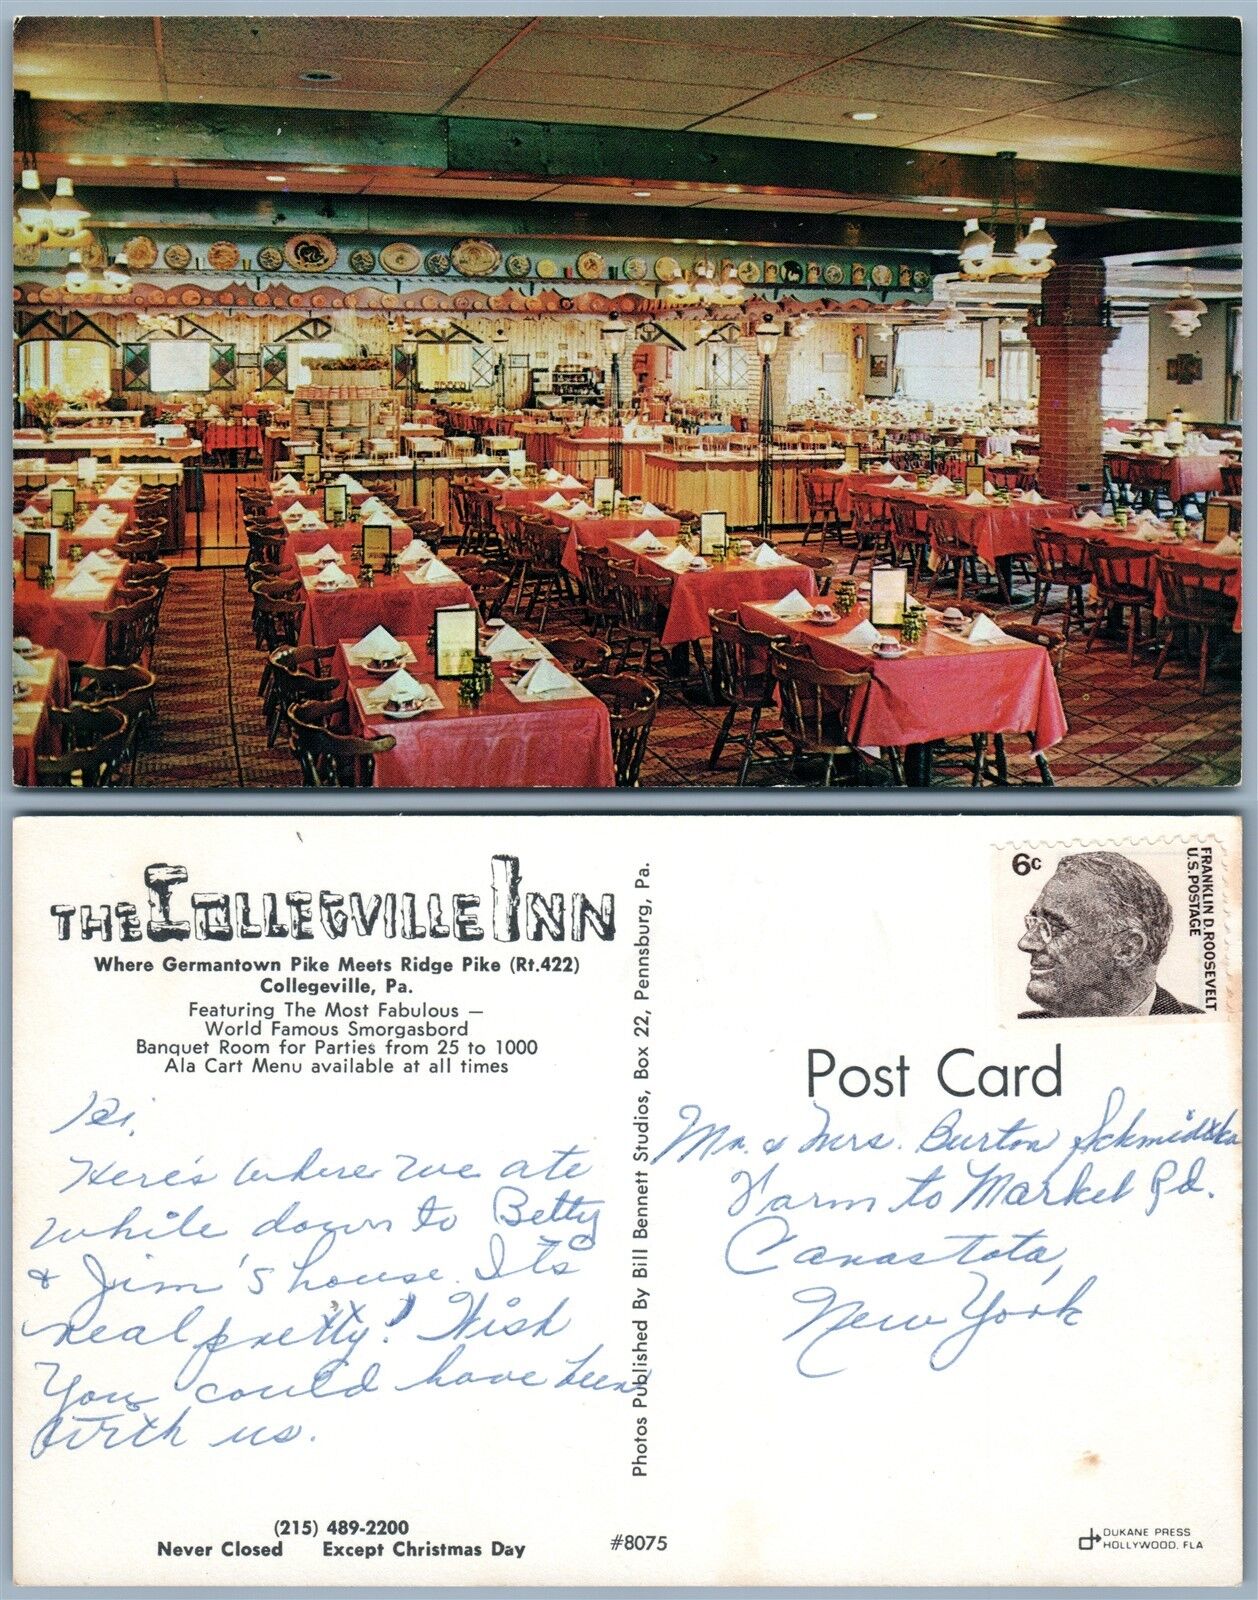 THE COLLEGEVILLE INN
Where Germantown Pike Meets Ridge Pike (Rt.422)
Collegeville, Pa.
Featuring The Most Fabulous —
World Famous Smorgasbord
Banquet Room for Parties from 25 to 1000
Ala Cart Menu available at all times
Hi,
Here's where we ate
while down to Betty
& Jim's house. It's
real pretty! Wish
You could have been
with us.
(215) 489-2200
Never Closed Except Christmas Day
Photos Published By Bill Bennett Studios, Box 22, Pennsburg, Pa.
#8075
6c
FRANKLIN D. ROOSEVELT
U.S. POSTAGE
Post Card
Mr. & Mrs. Burton
Farm to Market Rd.
Canastota,
New York
DUKANE PRESS
HOLLYWOOD, FLA